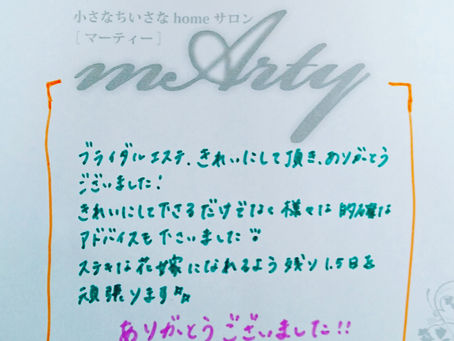 小さなちいさな home サロン
[ マーティー ]
mArty
ブライダルエステ、きれいにして頂き、ありがとう
ございました!
きれいにして下さるだけでなく様々な的確な
アドバイスも下さいました
ステキな花嫁になれるよう残り1.5日を
頑張ります
ありがとうございました!!